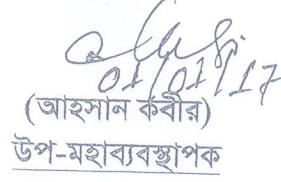 01/01/17
(আহসান কবীর)
উপ-মহাব্যবস্থাপক